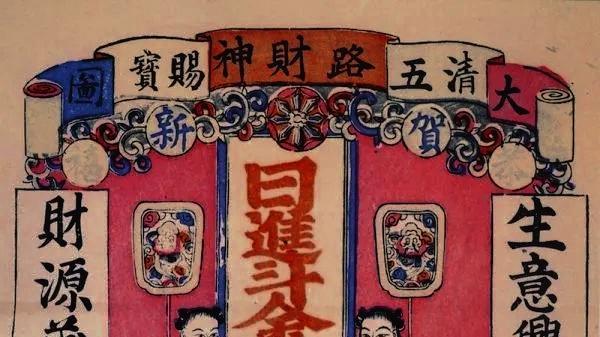 大清五路財神賜寶圖
賀新
生意興
日進斗金
財源